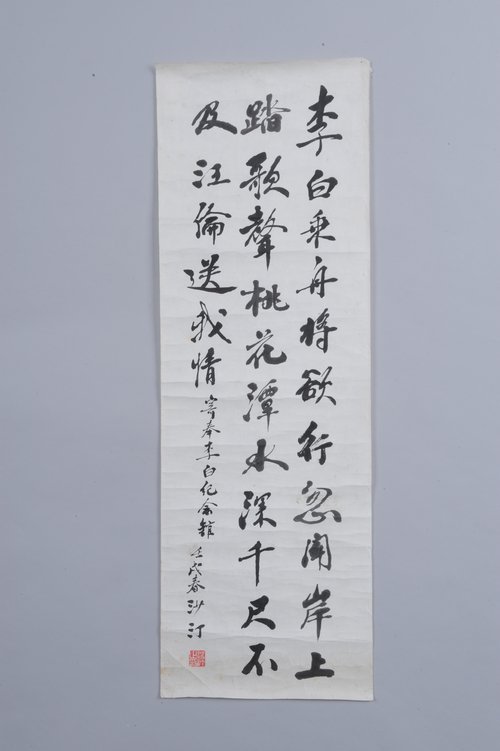 李白乘舟将欲行忽闻岸上
踏歌聲桃花潭水深千尺不
及汪倫送我情
寄奉李白纪念館 壬戌春 沙汀